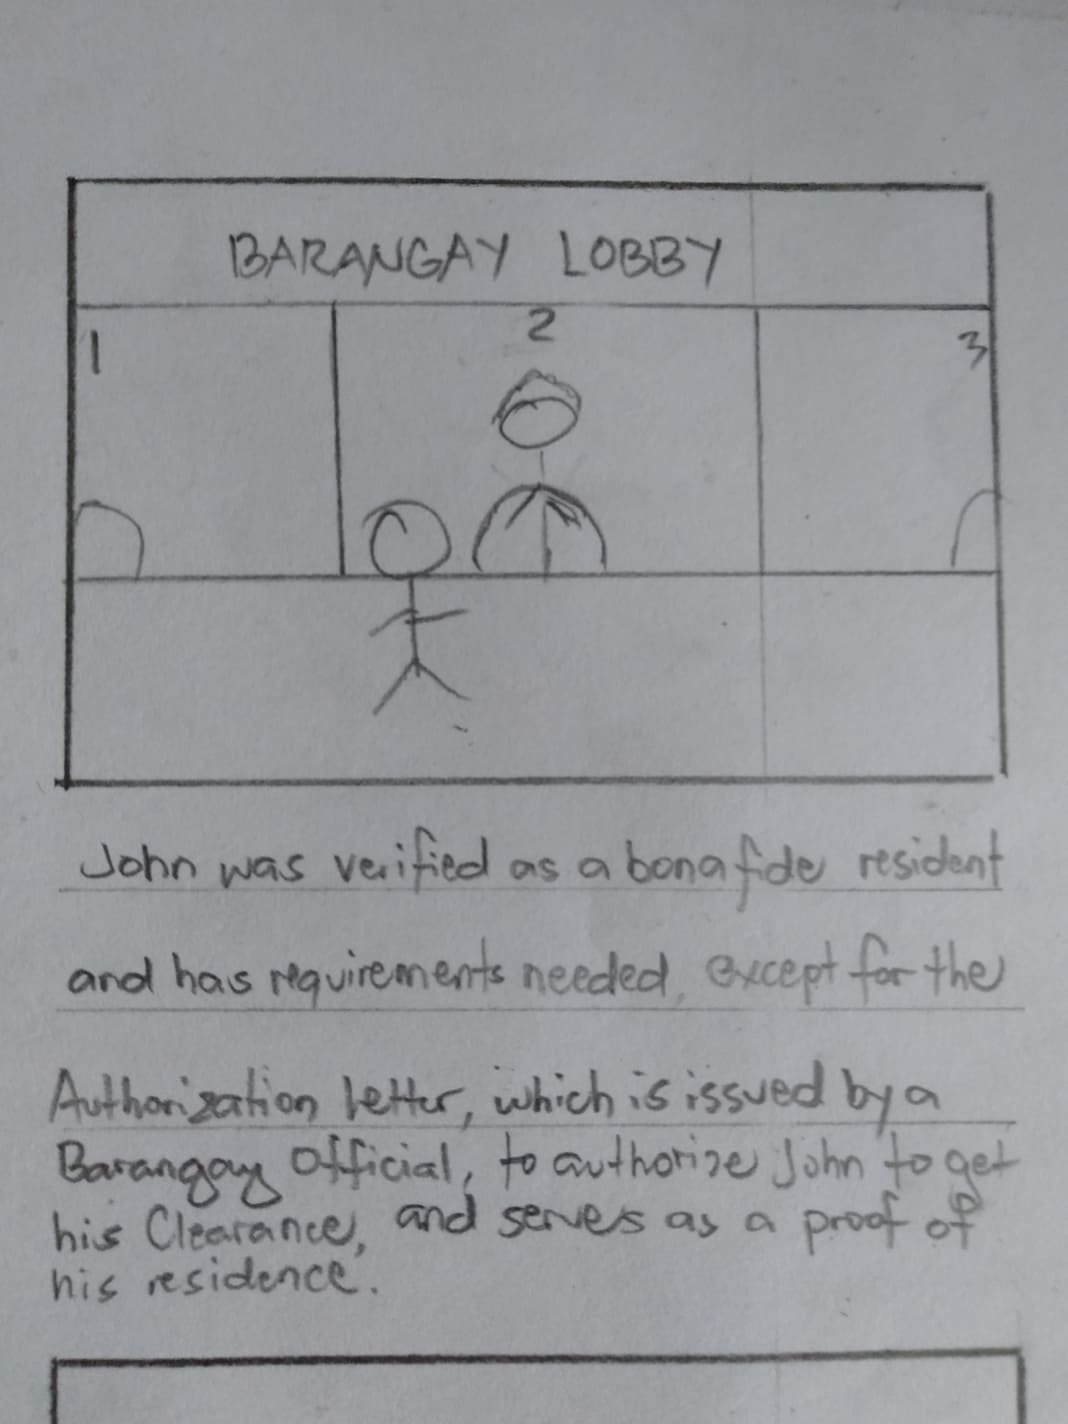 BARANGAY LOBBY
1
2
3
John was verified as a bonafide resident
and has requirements needed, except for the
Authorization letter, which is issued by a
Barangay Official, to authorize John to get
his Clearance, and serves as a proof of
his residence.